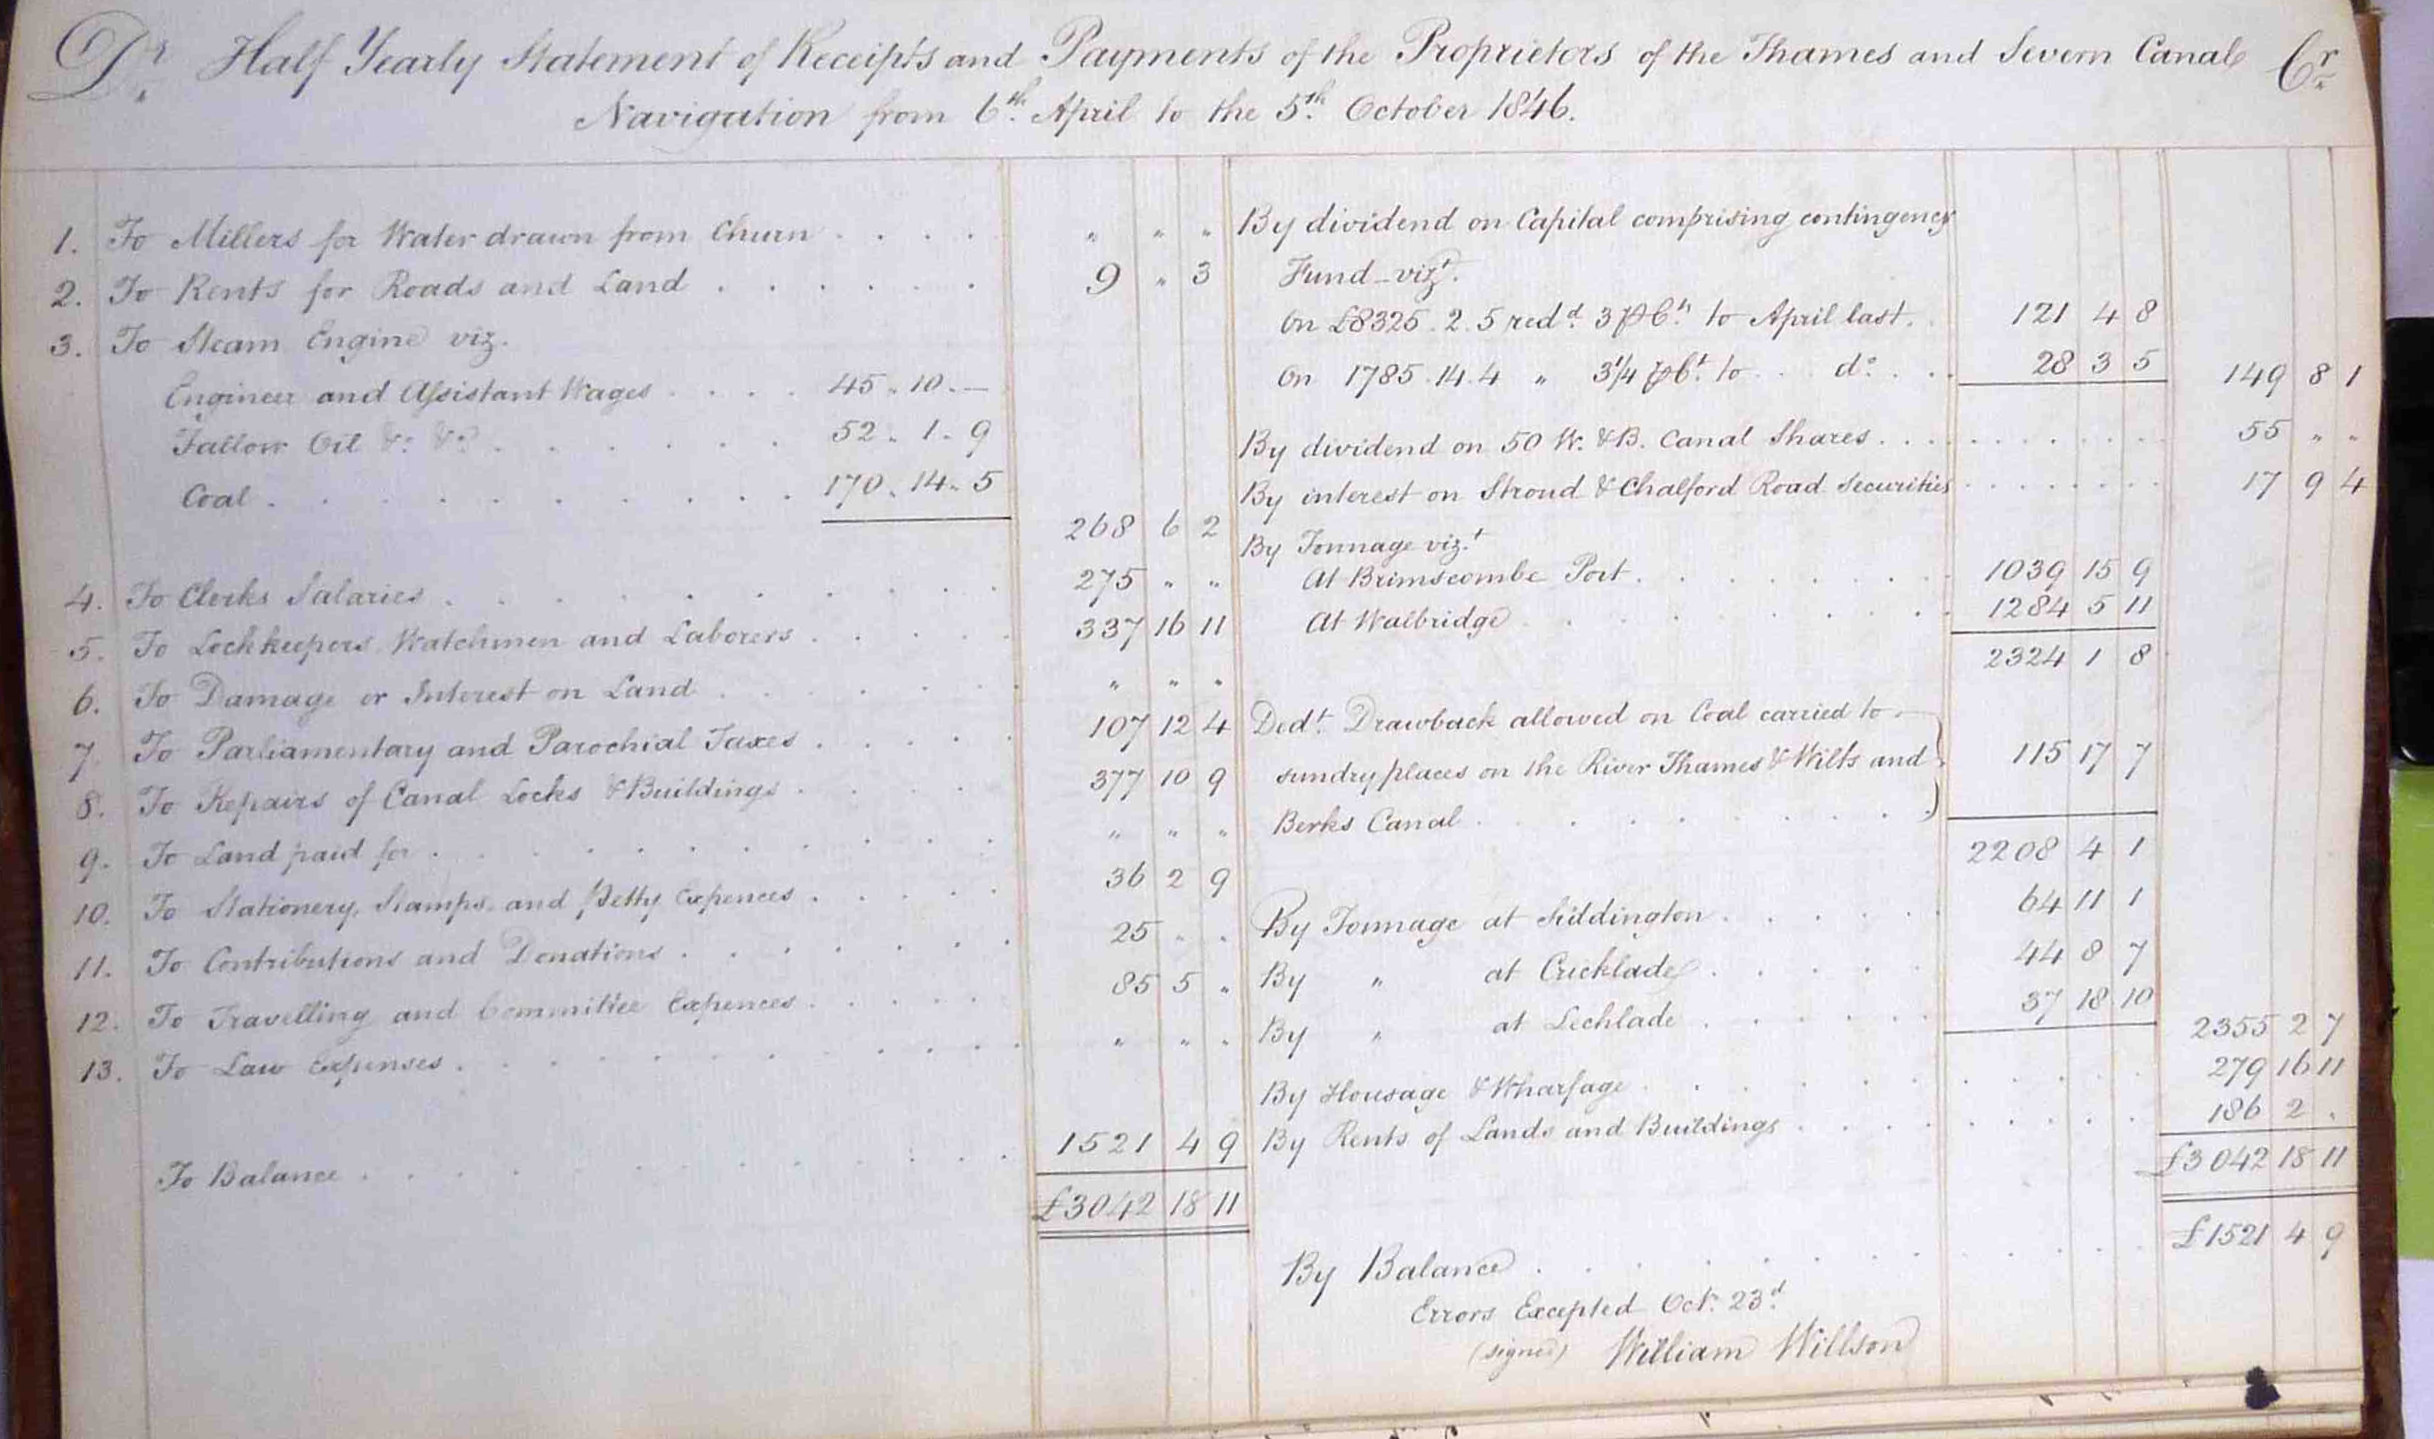 Dr. Half Yearly Statement of Receipts and Payments of the Proprietors of the Thames and Severn Canal Cr.
Navigation from 6th. April to the 5th. October 1846.
1. To Millers for Water drawn from Churn . . . . " " "
2. To Rents for Roads and Land . . . . . . 9 " 3
3. To Steam Engine viz.
Engineer and Assistant Wages . . . . 45 . 10 . —
Tallow Oil &c. &c. . . . . . . 52 . 1 . 9
Coal . . . . . . . . . . 170 . 14 . 5
268 6 2
4. To Clerks Salaries . . . . . . . . . 275 " "
5. To Lockkeepers Watchmen and Laborers . . . . . 337 16 11
6. To Damage or Interest on Land . . . . . . . " " "
7. To Parliamentary and Parochial Taxes . . . . . 107 12 4
8. To Repairs of Canal Locks & Buildings . . . . 377 10 9
9. To Land paid for . . . . . . . . . . " " "
10. To Stationery, Stamps, and Petty Expences . . . . 36 2 9
11. To Contributions and Donations . . . . . . . 25 " "
12. To Travelling and Committee Expences . . . . . 85 5 "
13. To Law Expenses . . . . . . . . . . " " "
To Balance . . . . . . . . . . . 1521 4 9
£3042 18 11
By dividend on Capital comprising contingency
Fund - vizt.
On £8325 . 2 . 5 redd. 3 P Ct. to April last . . 121 4 8
On 1785 . 14 . 4 " 3 1/4 P Ct. to . . do. . . . 28 3 5 149 8 1
By dividend on 50 W. & B. Canal Shares . . . . . . . . . . . 55 " "
By interest on Stroud & Chalford Road Securities . . . . . . . . 17 9 4
By Tonnage vizt.
At Brimscombe Port . . . . . . . . . 1039 15 9
At Walbridge . . . . . . . . . . 1284 5 11
2324 1 8
Dedt. Drawback allowed on Coal carried to
sundry places on the River Thames & Wilts and 115 17 7
Berks Canal . . . . . . . . .
2208 4 1
By Tonnage at Siddington . . . . . . 64 11 1
By " at Cricklade . . . . . 44 8 7
By " at Lechlade . . . . . . 37 18 10 2355 2 7
By Housage & Wharfage . . . . . . . . . . . 279 16 11
By Rents of Lands and Buildings . . . . . . . . . 186 2 "
£3042 18 11
By Balance . . . . . . . . . . . £1521 4 9
Errors Excepted Oct. 23d.
(signed) William Willson